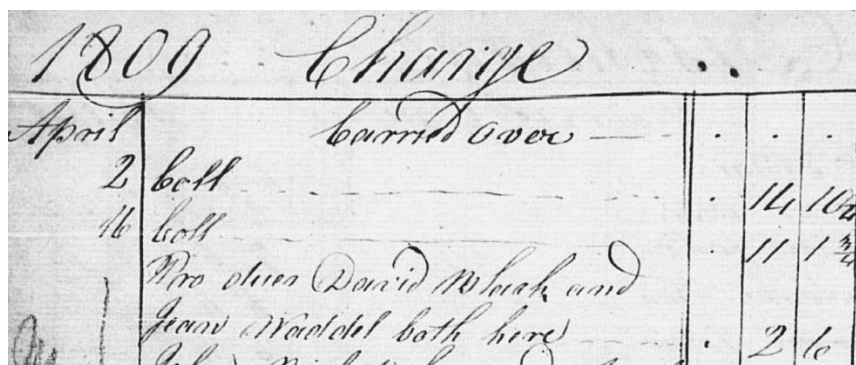 1809 Charge . .
April Carried over . . .
2 Coll . 14 10
16 Coll . 11 1 3/4
Pro dues David Black and
Jean Waddel both here . 2 6